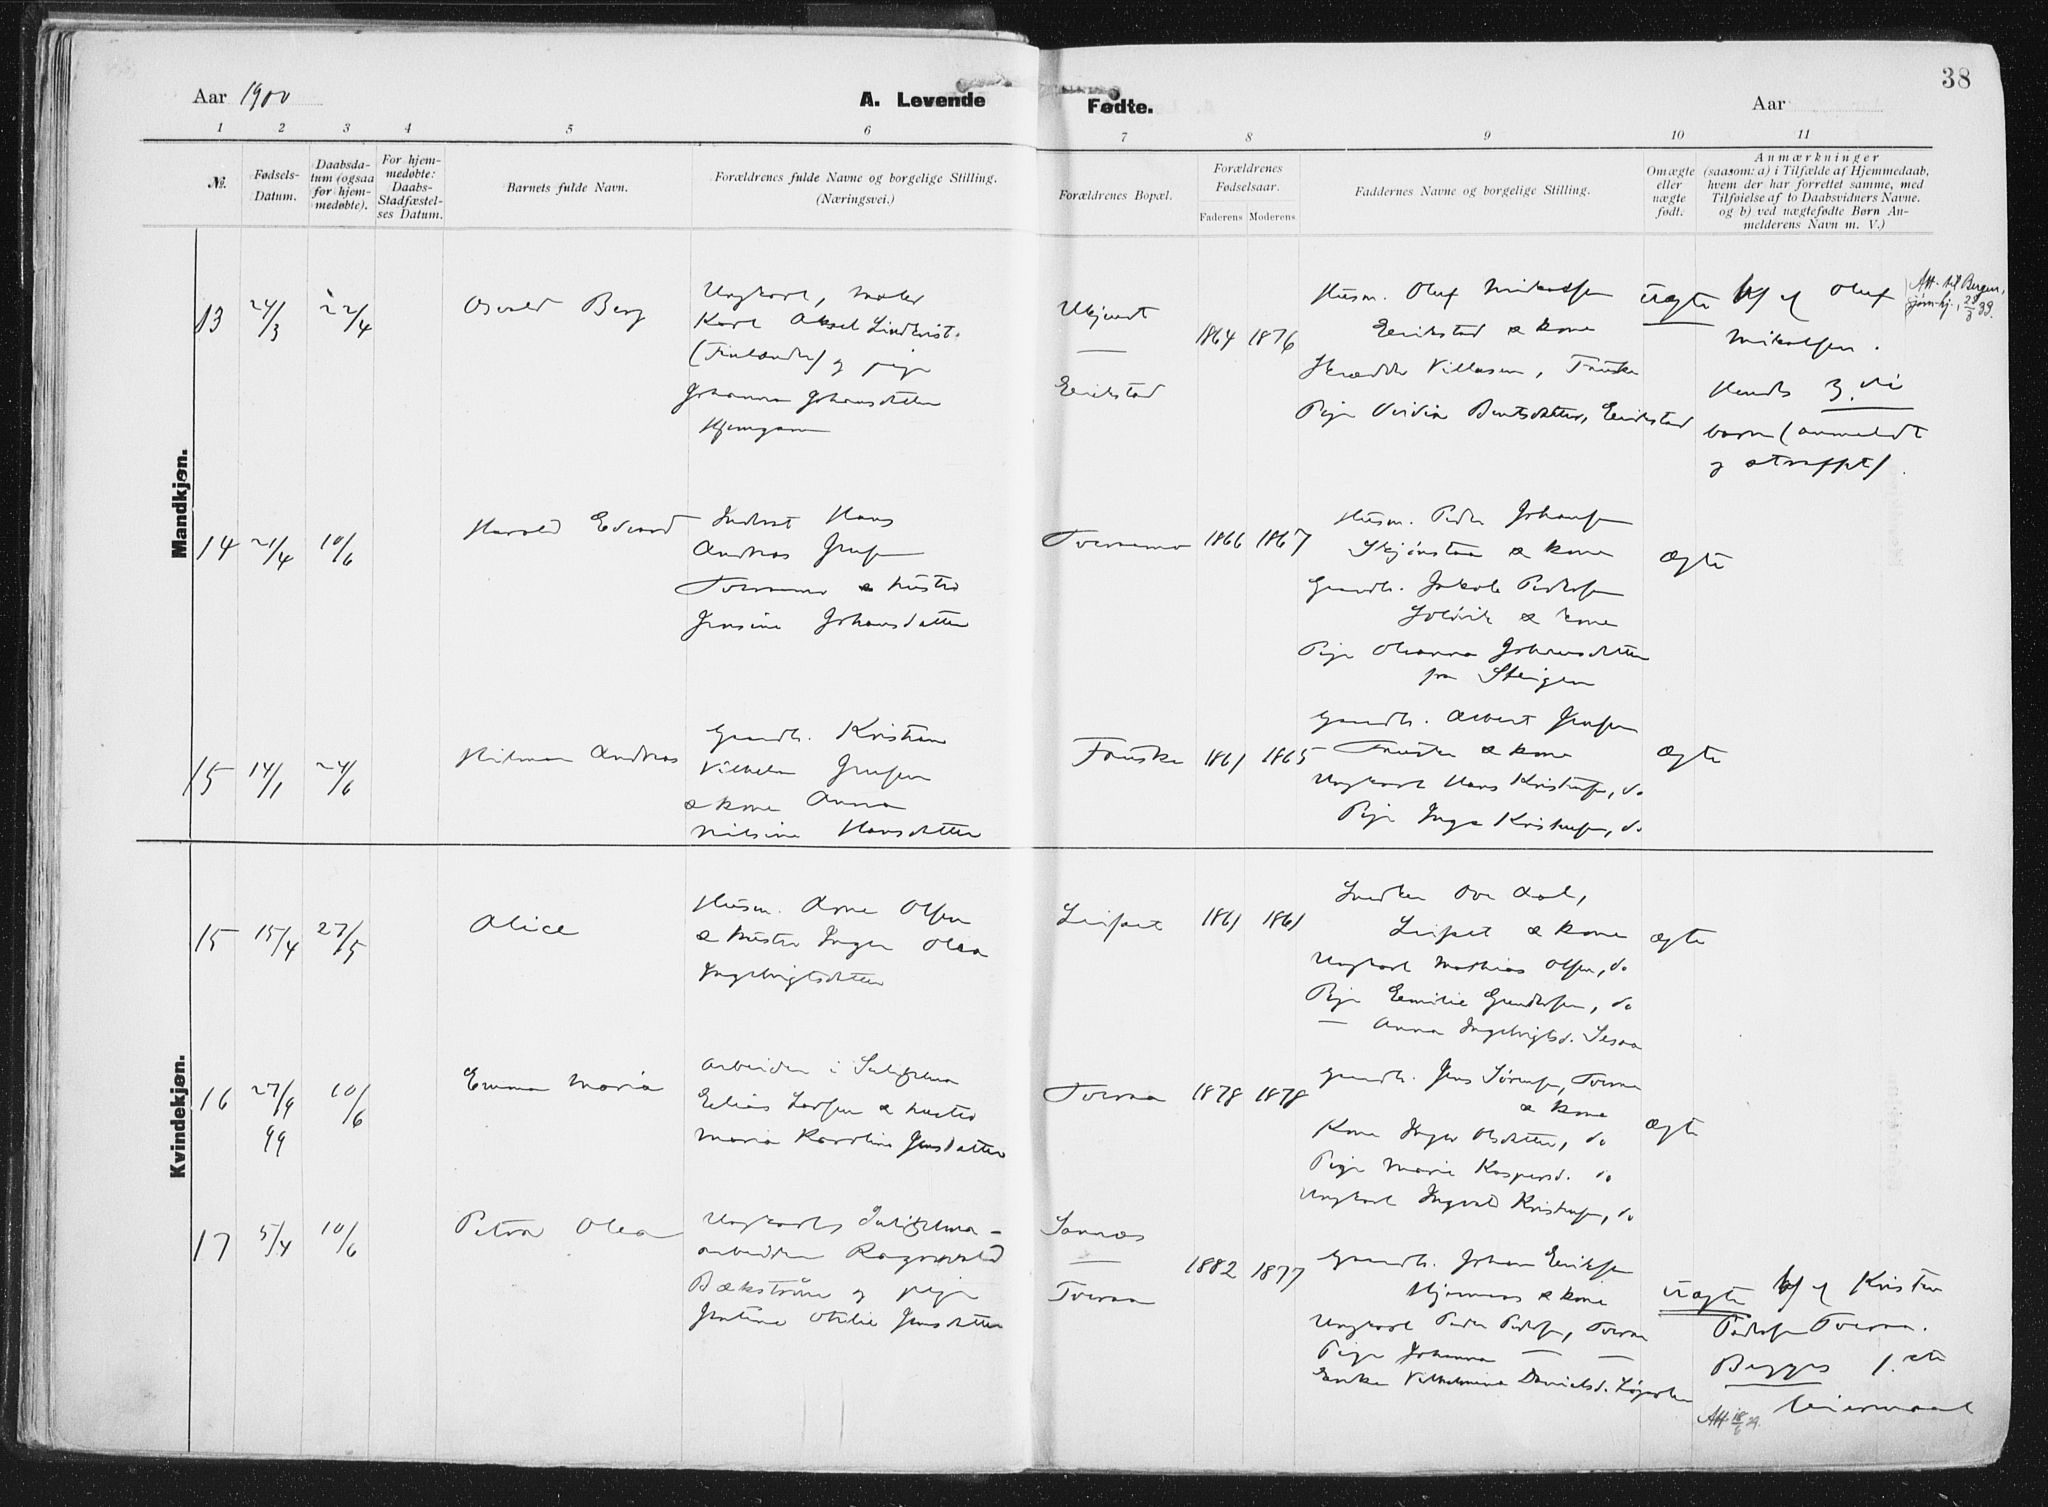 38
Aar 1900
A. Levende
Fødte.
Aar
1 2 3 4 5 6 7 8 9 10 11
№.
Fødsels-
Datum.
Daabsda-
tum (ogsaa
for hjem-
medøbte).
For hjem-
medøbte:
Daabs-
Stadfæstel-
ses Datum.
Barnets fulde Navn.
Forældrenes fulde Navne og borgelige Stilling.
(Næringsvei.)
Forældrenes Bopæl.
Forældrenes
Fødselsaar.
Faderens Moderens
Faddernes Navne og borgelige Stilling.
Omægte
eller
uægte
født.
Anmærkninger
(saasom: a) i Tilfælde af Hjemmedaab,
hvem der har forrettet samme, med
Tilføielse af to Daabsvidners Navne.
og b) ved uægtefødte Børn An-
melderens Navn m. V.)
Mandkjøn.
13
24/3
22/4
Osvald Berg
Ungkarl, Maler
Karl Aksel Lindkvist
(Finlænder) og pige
Johanna Johansdatter
Hjemgam
Ukjendt
—
Erikstad
1864 1876
Husm. Oluf Mikalsen
Erikstad & kone
Skrædder Villasen, Fauske
Pige Bentsdatter, Erikstad
uægte
Oluf
Mikalsen.
Hendes 3. die
barn (anmeldt
og straffet).
Att. til Bergen,
14
21/4
10/6
Harald Edvard
Inderst Hans
Andreas Jensen
Tverrmo & hustru
Jensine Johansdatter
Tverrmo
1866 1867
Husm. Peder Johansen
Skjønstaa & kone
Gaardb. Jakob Pedersen
& kone
Pige Oleanna Johansdatter
fra Steigen
Ægte
15
14/1
24/6
Hilmar Andreas
Gaardb. Kristian
Vilhelm Jensen
& kone Anna
Nilsine Hansdatter
Fauske
1861 1865
Gaardb. Albert Jensen
Fauske & kone
Ungkarl Hans Kristensen, do
Pige Inga Kristensen, do
Ægte
Kvindekjøn.
15
15/4
27/5
Alice
Husm. Arne Olsen
& hustru Inger Olea
Ingebrigtsdatter
Leifset
1861 1861
Snedker Ove Aal,
Leifset & kone
Ungkarl Mathias Olsen, do
Pige Emilie Gundersen, do
— Anna Ingebrigtsd.
Ægte
16
27/9
99
10/6
Emma Maria
Arbeider i Sulitjelma
Elias Larsen & hustru
Maria Karoline Jensdatter
Tveraa
1878 1878
Gaardb. Jens Sørensen, Tveraa
& kone
Kone Inger Olsdatter, do
Pige Marie Kaspersd. do
Ungkarl Ingvald Kristensen, do
Ægte
17
5/4
10/6
Petra Olea
Ungkarl, Sulitjelma-
arbeider Ragnvald
Bækstrøm og pige
Jentine Otilie Jensdatter
Sannæs
—
Tveraa
1882 1877
Gaardb. Johan Eriksen
& kone
Ungkarl Peder Pedersen, Tveraa
Pige Johanna — —
Enke Vilhelmine Danielsd.
uægte
Kristen
Pedersen Tveraa.
Begges 1. ste
leiermaal
Att. 18/6 29.